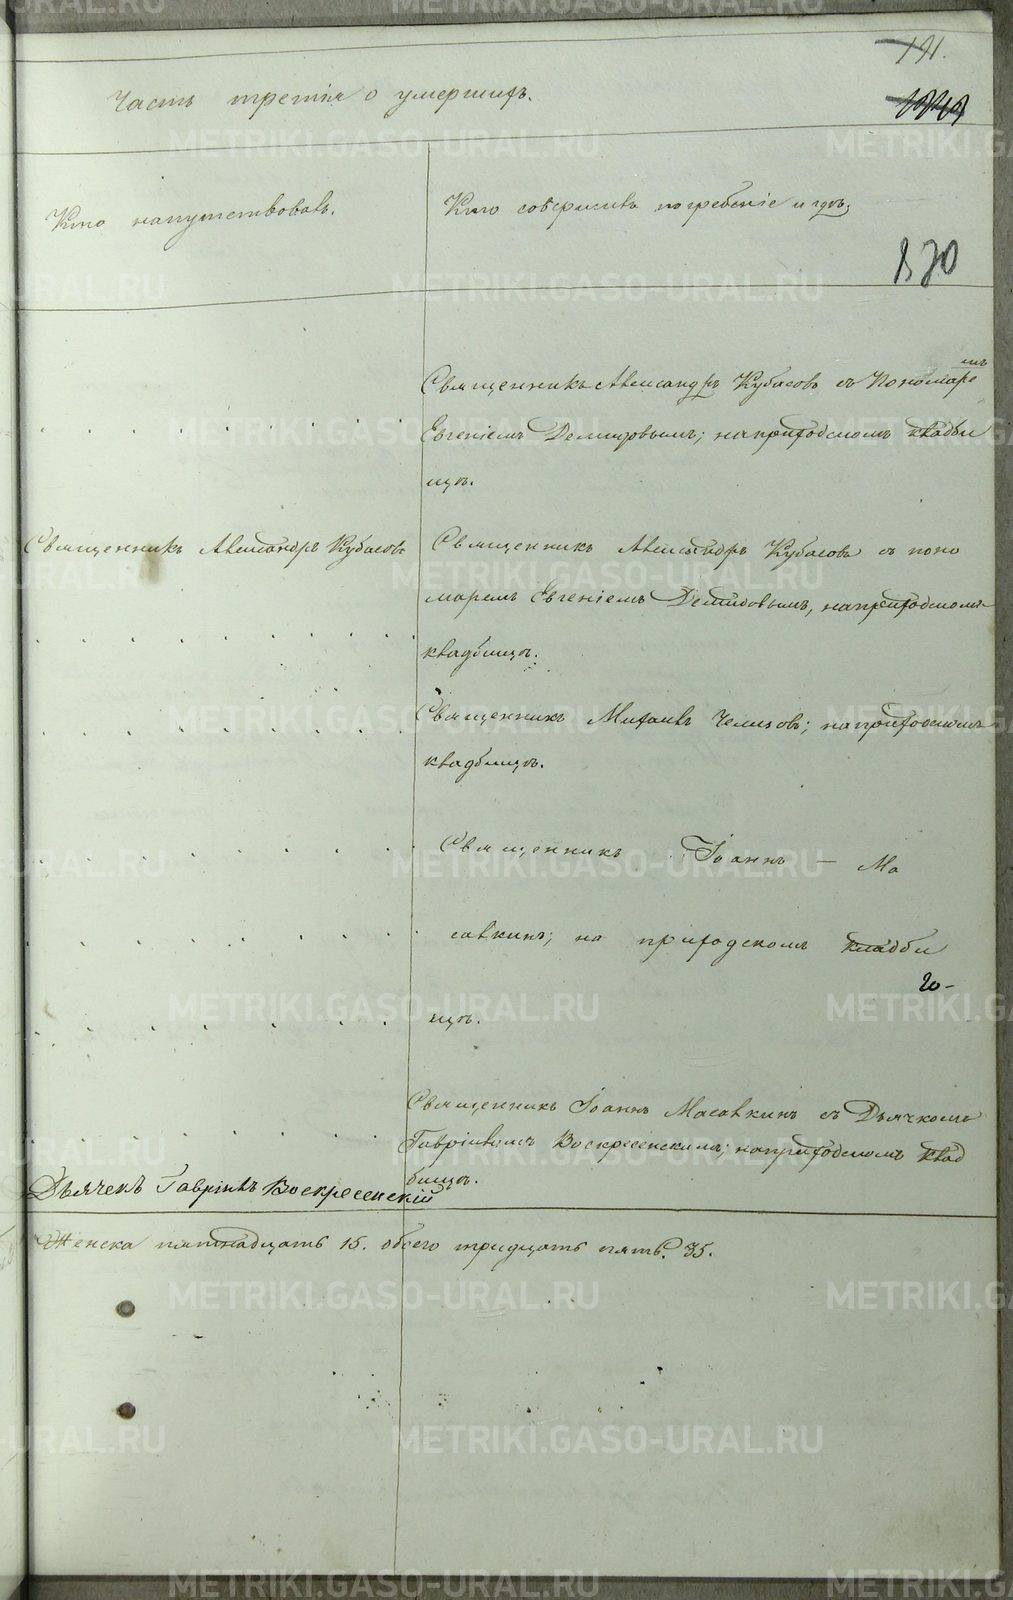 191.
Часть третія о умершихъ.
Кто напутствовалъ.
Кто совершилъ погребеніе и гдѣ;
870
Священникъ Александръ Кубасовъ съ Пономаре
мъ
Евгеніемъ Демидовымъ; на приходскомъ кладби
щѣ.
Священникъ Александръ Кубасовъ
Священникъ Александръ Кубасовъ съ поно
маремъ Евгеніемъ Демидовымъ, на приходскомъ
кладбищѣ.
Священникъ Михаилъ Челизовъ; на приходскомъ
кладбищѣ.
Священникъ Іоаннъ — Ма
савкинъ; на приходскомъ кладби
щѣ.
Священникъ Іоаннъ Масавкинъ съ Дьячкомъ
Гавріиломъ Воскресенскимъ; на приходскомъ клад
бищѣ.
Дьячекъ Гавріилъ Воскресенскій
Женска пятнадцать 15. обоего тридцать пять. 35.
METRIKI.GASO-URAL.RU